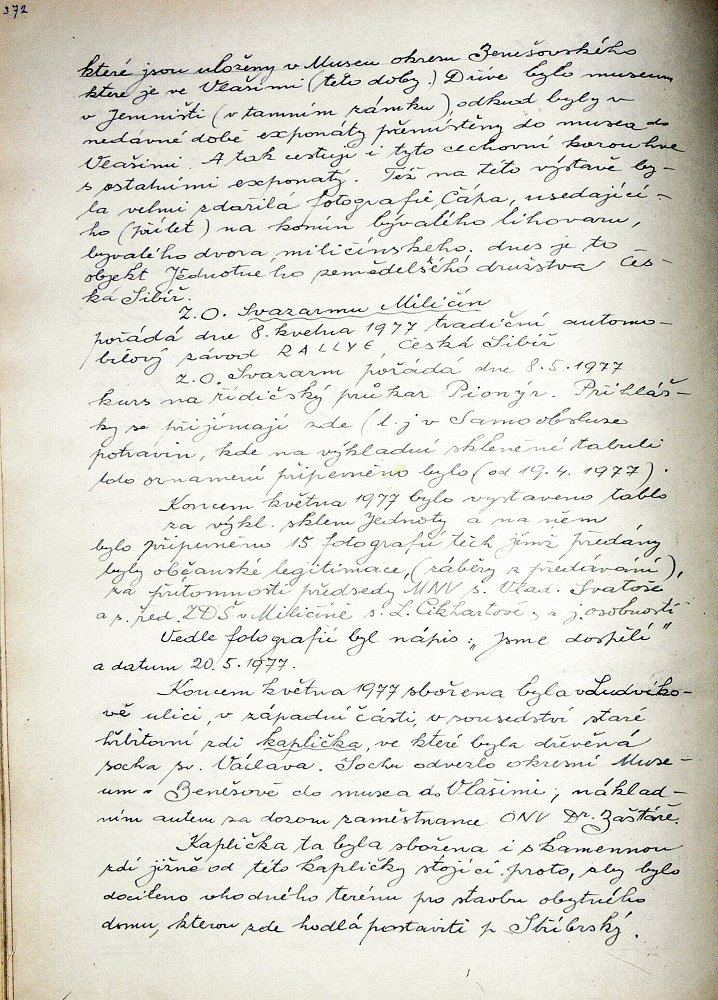 372
které jsou uloženy v Museu okresu Benešovského
které je ve Vlašimi (této doby.) Dříve bylo museum
v Jemništi (v tamním zámku), odkud byly v
nedávné době exponáty přemístěny do musea do
Vlašimi. A tak cestují i tyto cechovní korouhve
s ostatními exponáty. Též na této výstavě by-
la velmi zdařilá fotografie Čápa, usedající-
ho (přílet) na komín bývalého lihovaru,
bývalého dvora miličínského. dnes je to
objekt Jednotného zemědělského družstva Čes-
ká Sibiř.
Z.O. Svazarmu Miličín
pořádá dne 8. května 1977 tradiční automo-
bilový závod RALLYE Česká Sibiř
Z.O. Svazarm pořádá dne 8.5.1977
kurs na řidičský průkaz Pionýr. Přihláš-
ky se přijímají zde (t.j v Samoobsluze
potravin, kde na výkladní skleněné tabuli
toto oznámení připevněno bylo (od 19.4.1977).
Koncem května 1977 bylo vystaveno tablo
za výkl. sklem Jednoty a na něm
bylo připevněno 15 fotografií těch jimž předány
byly občanské legitimace, (záběry z předávání),
za přítomnosti předsedy MNV s. Vlad. Svatoše
a s. řed. ZDŠ v Miličíně s. L. Cikhartové a j. osobností
Vedle fotografií byl nápis: „Jsme dospělí"
a datum 20.5.1977.
Koncem května 1977 sbořena byla v Ludvíko-
vě ulici, v západní části, v sousedství staré
hřbitovní zdi kaplička, ve které byla dřevěná
socha sv. Václava. Sochu odvezlo okresní Muse-
um v Benešově do musea do Vlašimi, náklad-
ním autem za dozoru zaměstnance ONV Dr. Zaštěře.
Kaplička ta byla sbořena i s kamennou
zdí jižně od této kapličky stojící proto, aby bylo
docíleno vhodného terénu pro stavbu obytného
domu, kterou zde hodlá postaviti p. Stříbrský.